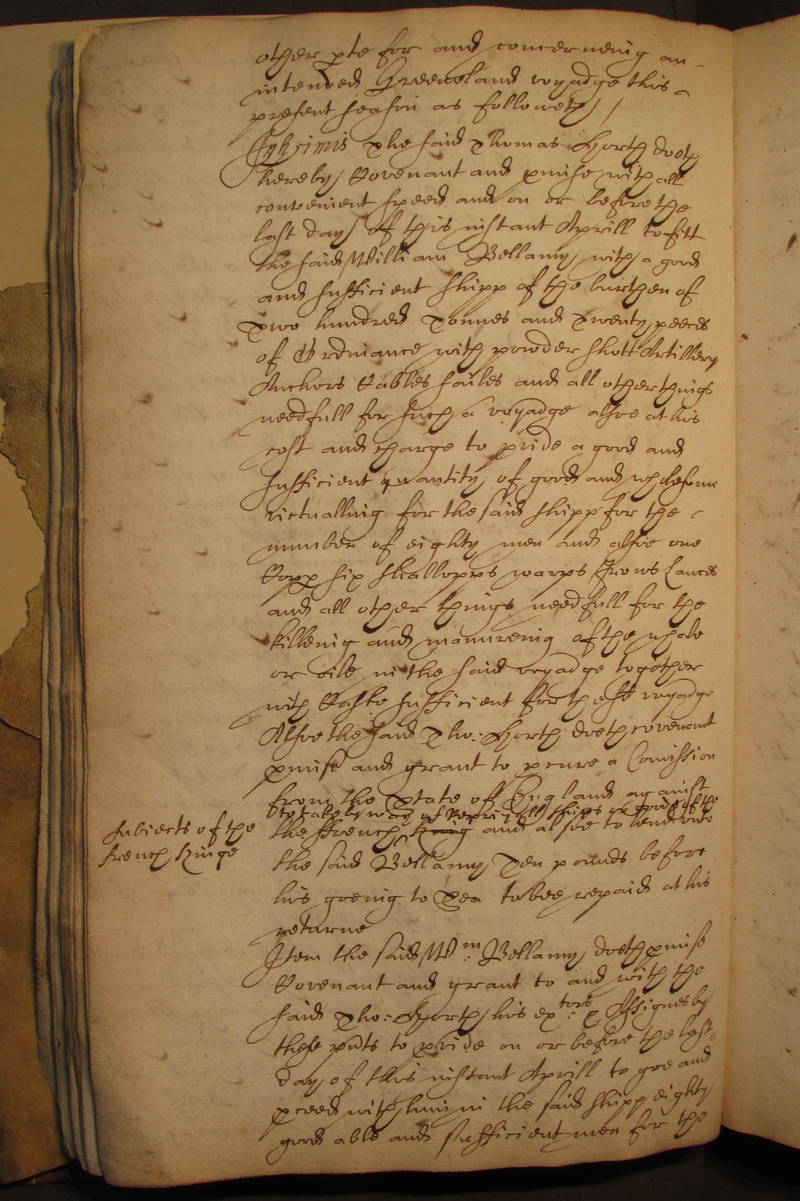 other pte for and concerneing an
intended Greeneland voyadge this
present season as followeth /
Inprimis The said Thomas Horth doeth
hereby Covenant and pmise with all
convenient speed and on or before the
last day of this instant Aprill to fitt
the said William Bellamy with a good
and sufficient shipp of the burthen of
Two hundred Tonnes and twenty peeces
of Ordinance with powder shott Artillery
Anchors Cables sailes and all other things
needfull for such a voyadge alsoe at his
cost and charge to pvide a good and
sufficient quantity of good and wholesome
victualling for the said shipp for the
number of eighty men and alsoe one
six shallopps warps Lances
and all other things needfull for the
killeing and of the whale
or oile in the said voyadge together
with Caske sufficient for the sd voyadge
Alsoe the said Tho: Horth doeth covenant
pmise and grant to pcure a Comission
from the State of England against
to take by way of shipps or goods of the
subiects of the
french Kinge
the ffrench King and alsoe to lend unto
the said Bellamy Ten pounds before
his goeing to Sea to bee repaid at his
returne
Item the said Wm: Bellamy doeth pmise
Covenant and grant to and with the
said Tho: Horth his extors: & Assignes by
these pnts to pvide on or before the last
day of this instant Aprill to goe and
pceed with him in the said shipp eighty
good able and sufficient men for the